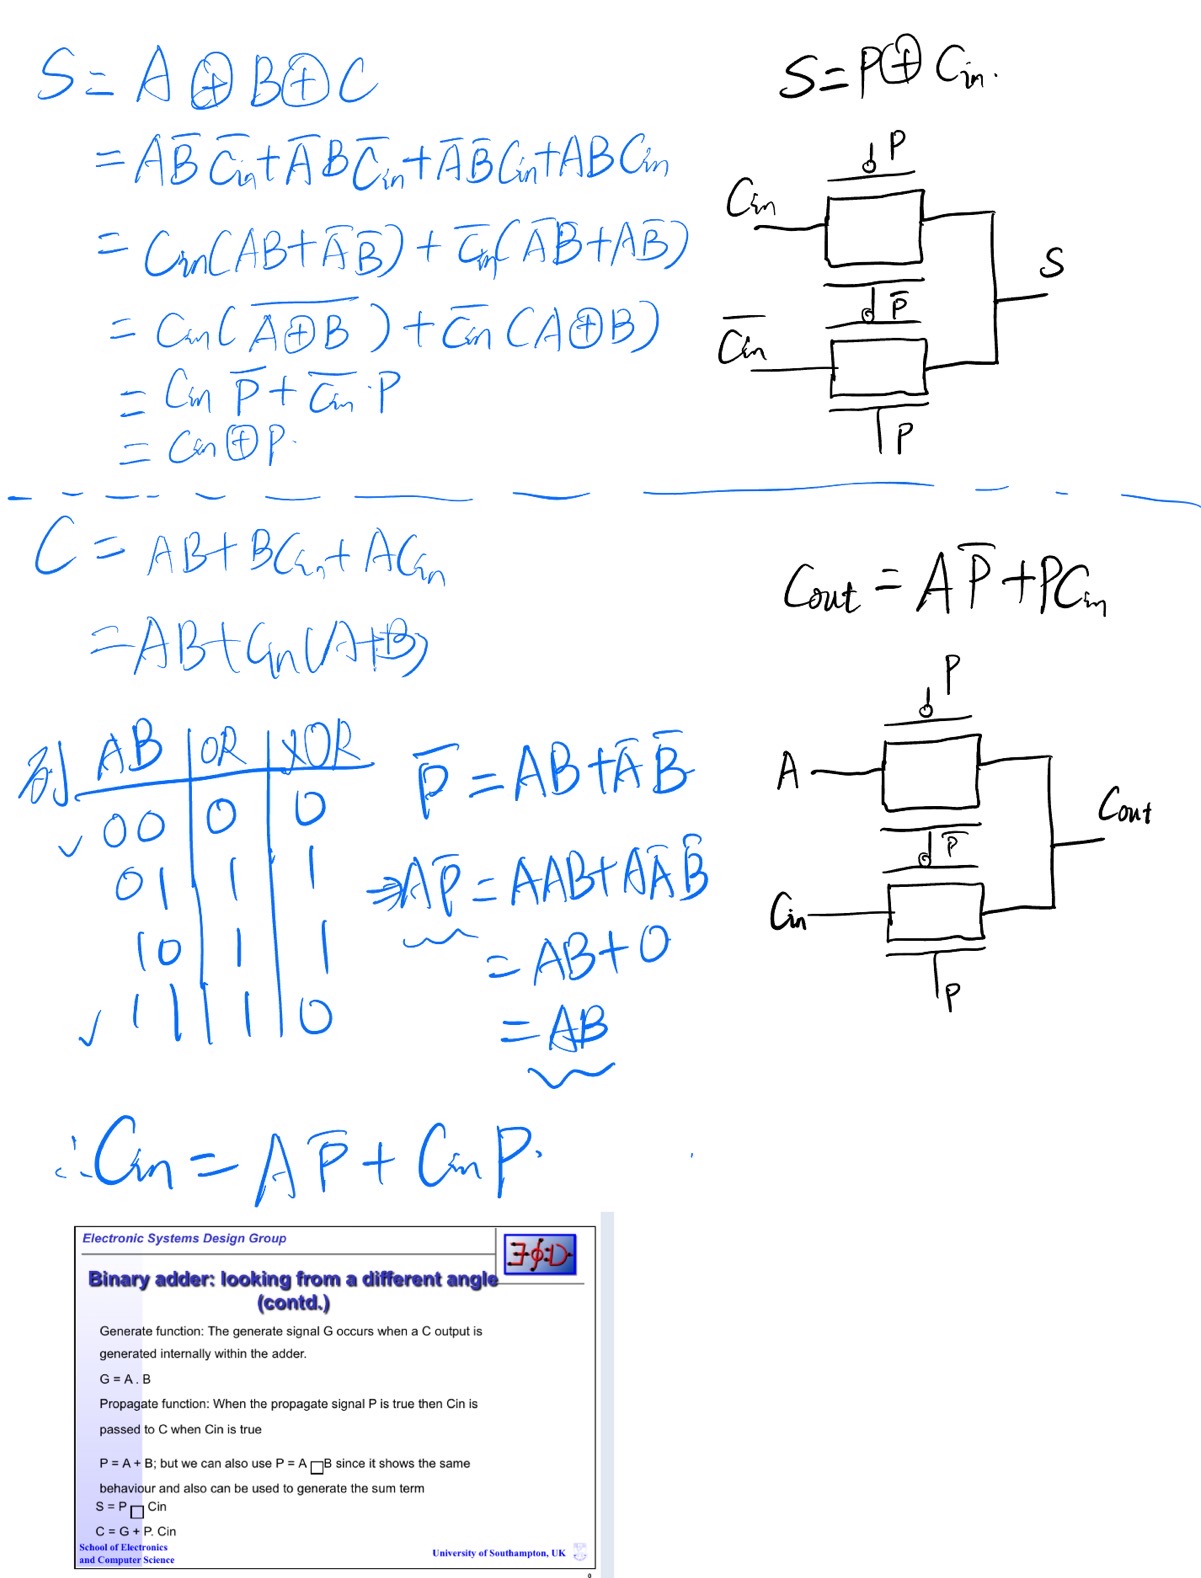 S = A ⊕ B ⊕ C
= AB̅C̅in + A̅BC̅in + A̅B̅Cin + ABCin
= Cin(AB + A̅B̅) + C̅in(A̅B + AB̅)
= Cin(A̅⊕̅B̅) + C̅in(A⊕B)
= Cin P̅ + C̅in·P
= Cin ⊕ P.
S = P ⊕ Cin.
P
Cin
P̅
S
C̅in
P
C = AB + BCin + ACin
= AB + Cin(A+B)
列 AB | OR | XOR
✓ 00 | 0 | 0
01 | 1 | 1
10 | 1 | 1
✓ 11 | 1 | 0
P̅ = AB + A̅B̅
⇒ AP̅ = AAB + AA̅B̅
= AB + 0
= AB
∴ Cin = AP̅ + CinP.
Cout = AP̅ + PCin
P
A
P̅
Cout
Cin
P
Electronic Systems Design Group
Binary adder: looking from a different angle
(contd.)
Generate function: The generate signal G occurs when a C output is
generated internally within the adder.
G = A . B
Propagate function: When the propagate signal P is true then Cin is
passed to C when Cin is true
P = A + B; but we can also use P = A □B since it shows the same
behaviour and also can be used to generate the sum term
S = P □ Cin
C = G + P. Cin
School of Electronics
and Computer Science
University of Southampton, UK